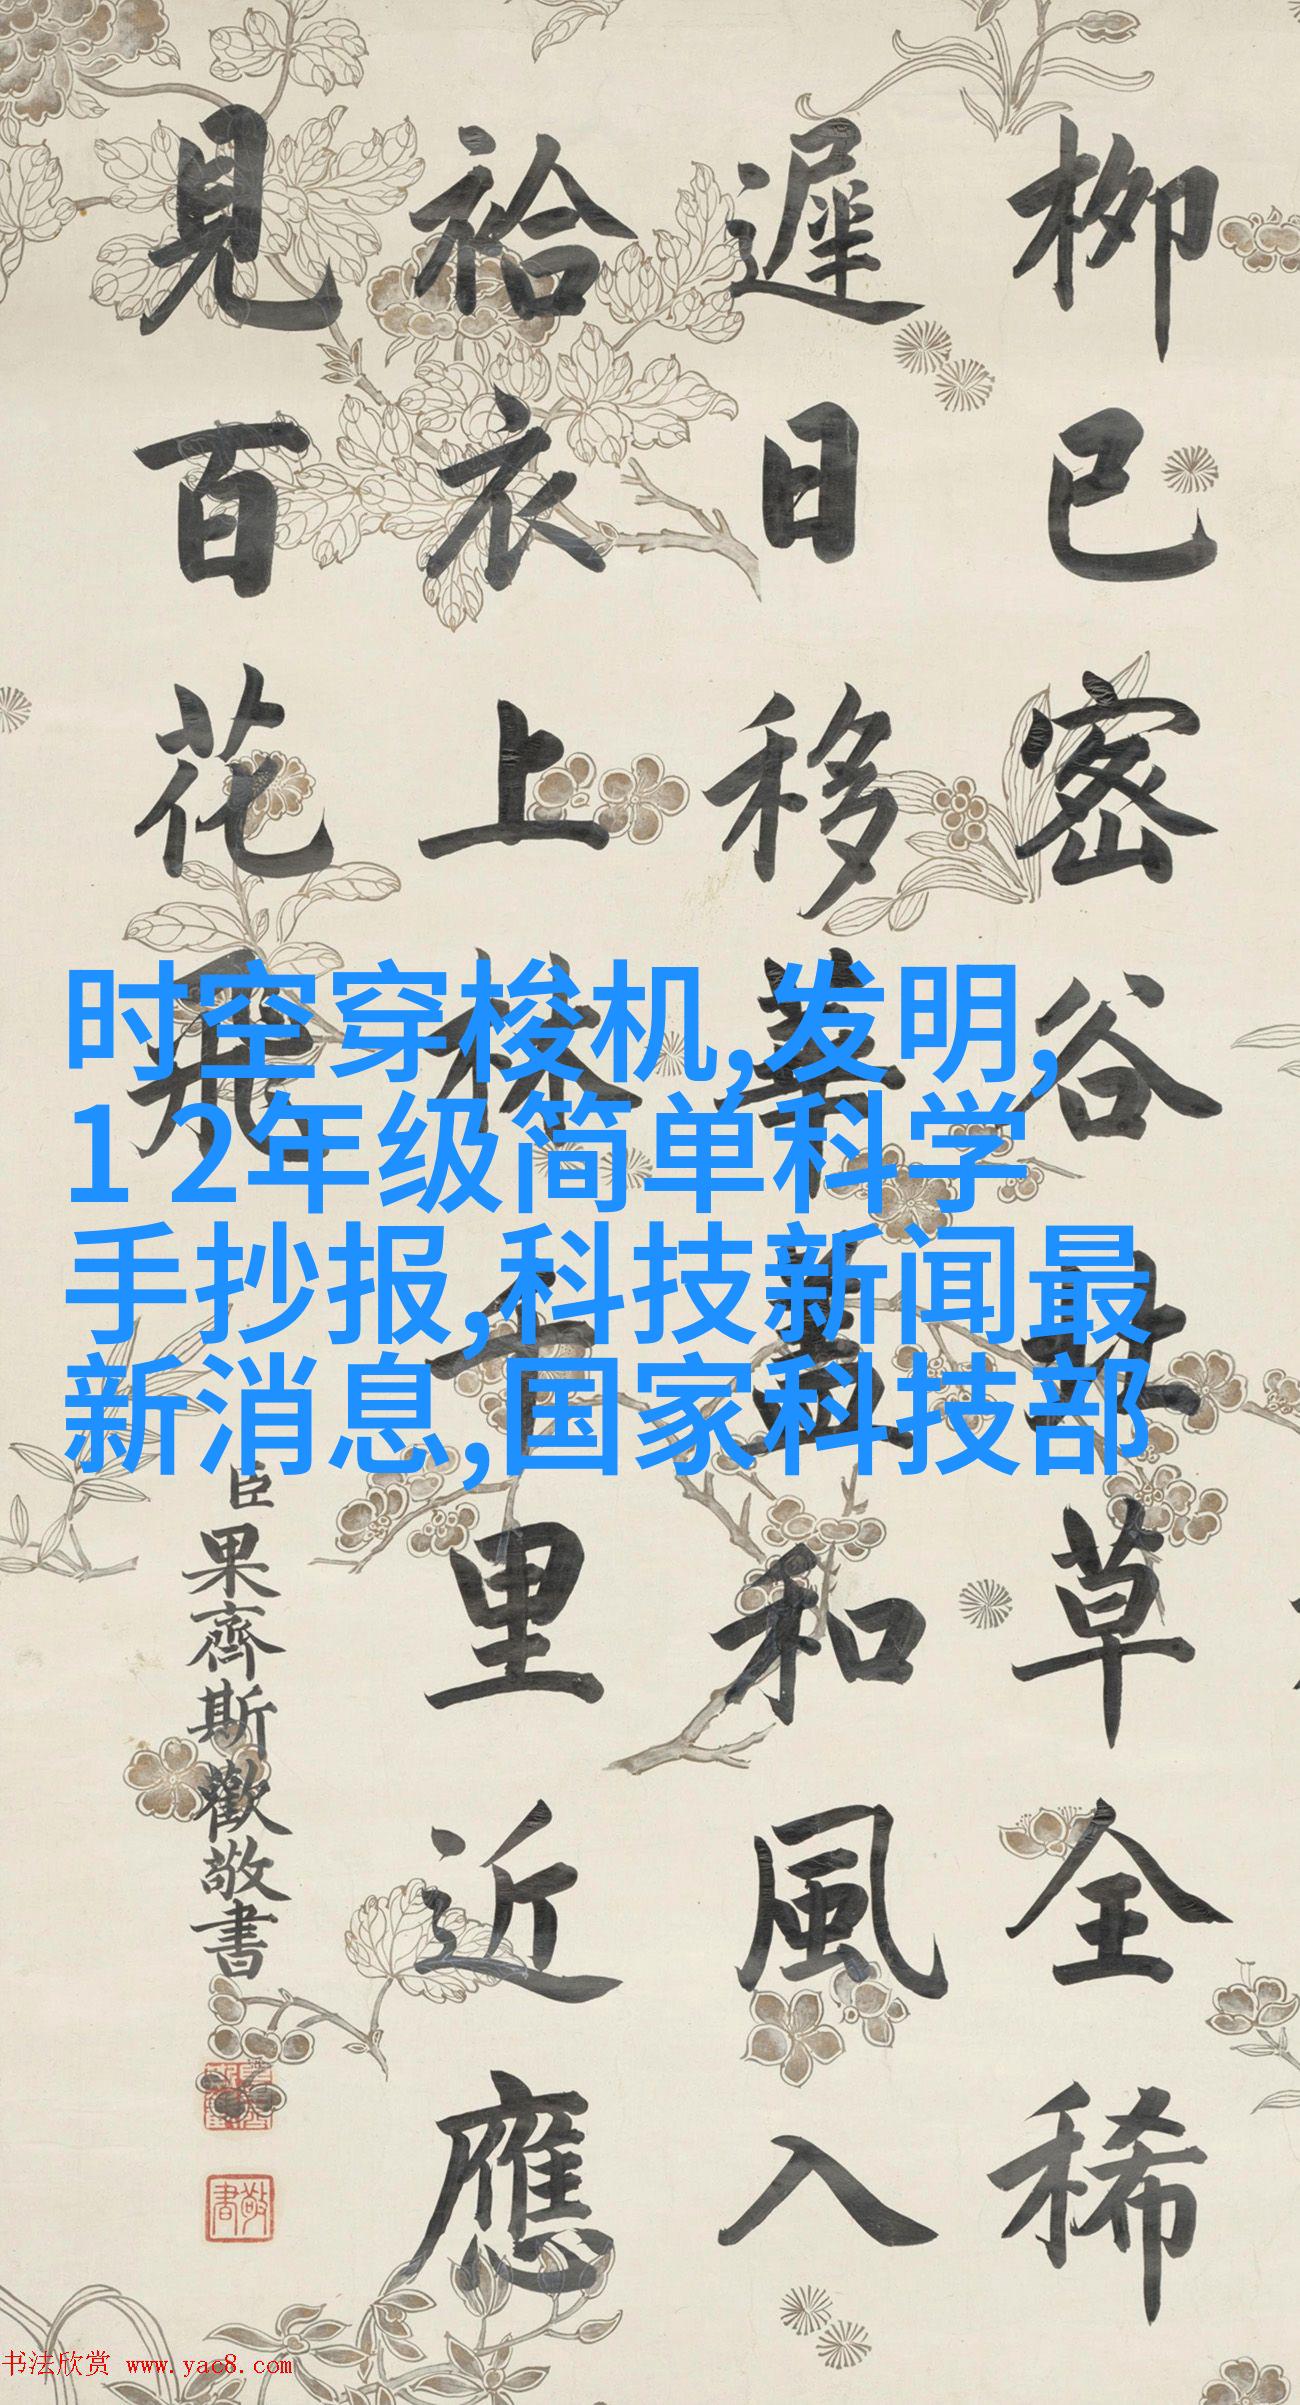 柳已密谷草全稀
遲日移華蓋和風入
袷衣上林千里近應
見百花飛
臣果齊斯歡敬書
敬書
时空穿梭机,发明,
1 2年级简单科学
手抄报,科技新闻最
新消息,国家科技部
书法欣赏 www.yac8.com